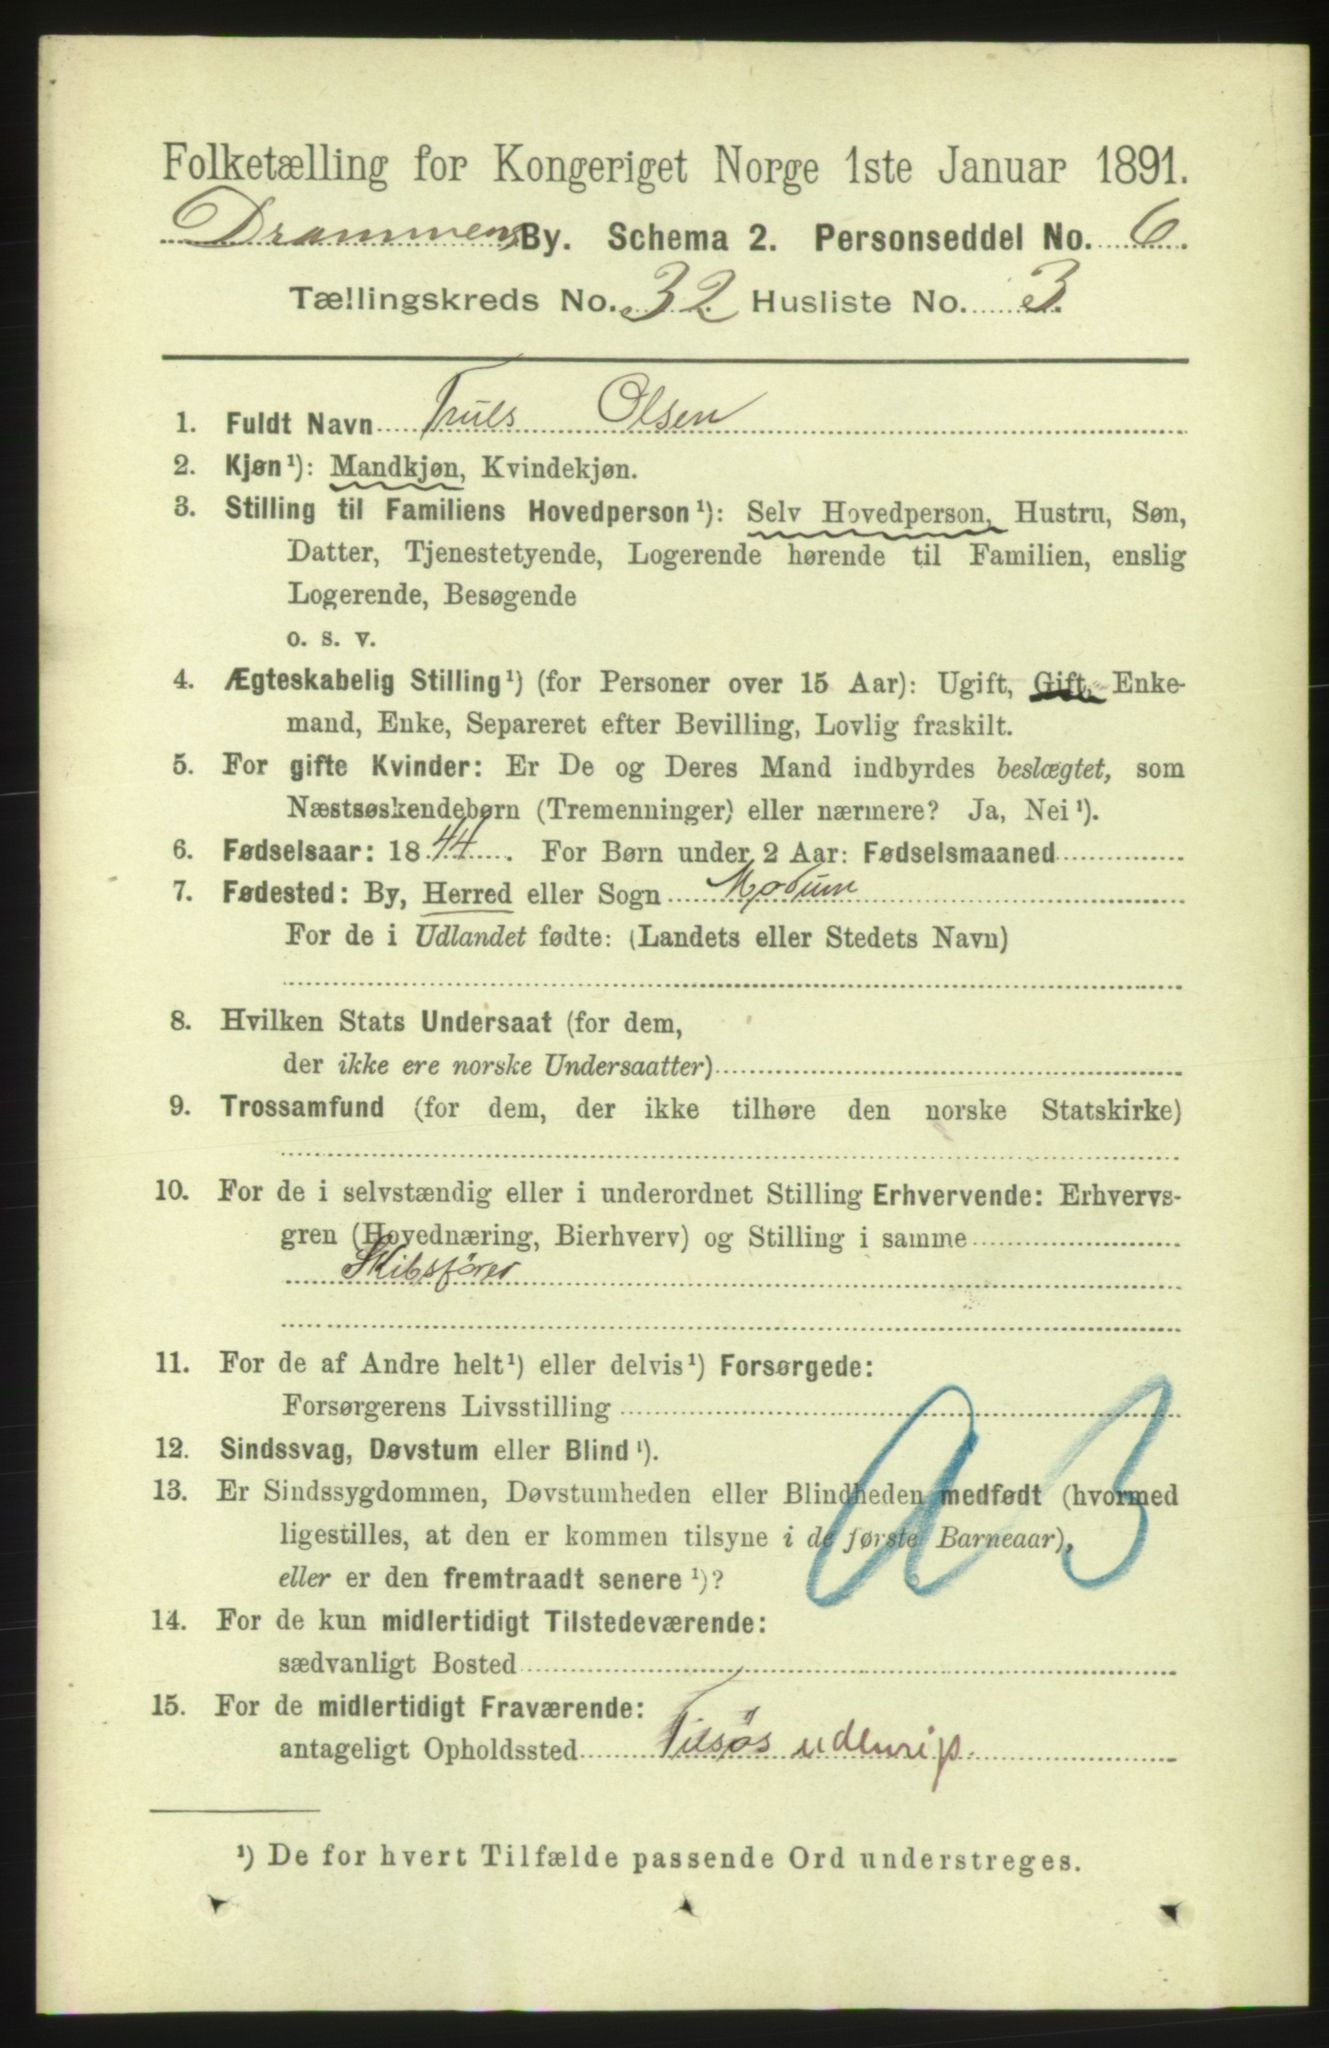 Folketælling for Kongeriget Norge 1ste Januar 1891.
Drammens By. Schema 2. Personseddel No. 6.
Tællingskreds No. 32 Husliste No. 3.
1. Fuldt Navn Truls Olsen
2. Kjøn¹): Mandkjøn, Kvindekjøn.
3. Stilling til Familiens Hovedperson¹): Selv Hovedperson, Hustru, Søn,
Datter, Tjenestetyende, Logerende hørende til Familien, enslig
Logerende, Besøgende
o. s. v.
4. Ægteskabelig Stilling¹) (for Personer over 15 Aar): Ugift, Gift, Enke-
mand, Enke, Separeret efter Bevilling, Lovlig fraskilt.
5. For gifte Kvinder: Er De og Deres Mand indbyrdes beslægtet, som
Næstsøskendebørn (Tremenninger) eller nærmere? Ja, Nei¹).
6. Fødselsaar: 1844. For Børn under 2 Aar: Fødselsmaaned
7. Fødested: By, Herred eller Sogn Modum
For de i Udlandet fødte: (Landets eller Stedets Navn)
8. Hvilken Stats Undersaat (for dem,
der ikke ere norske Undersaatter)
9. Trossamfund (for dem, der ikke tilhøre den norske Statskirke)
10. For de i selvstændig eller i underordnet Stilling Erhvervende: Erhvervs-
gren (Hovednæring, Bierhverv) og Stilling i samme
Skibsfører
11. For de af Andre helt¹) eller delvis¹) Forsørgede:
Forsørgerens Livsstilling
12. Sindssvag, Døvstum eller Blind¹).
13. Er Sindssygdommen, Døvstumheden eller Blindheden medfødt (hvormed
ligestilles, at den er kommen tilsyne i de første Barneaar),
eller er den fremtraadt senere¹)?
14. For de kun midlertidigt Tilstedeværende:
sædvanligt Bosted
15. For de midlertidigt Fraværende:
antageligt Opholdssted Tilsøs udenrigs
¹) De for hvert Tilfælde passende Ord understreges.